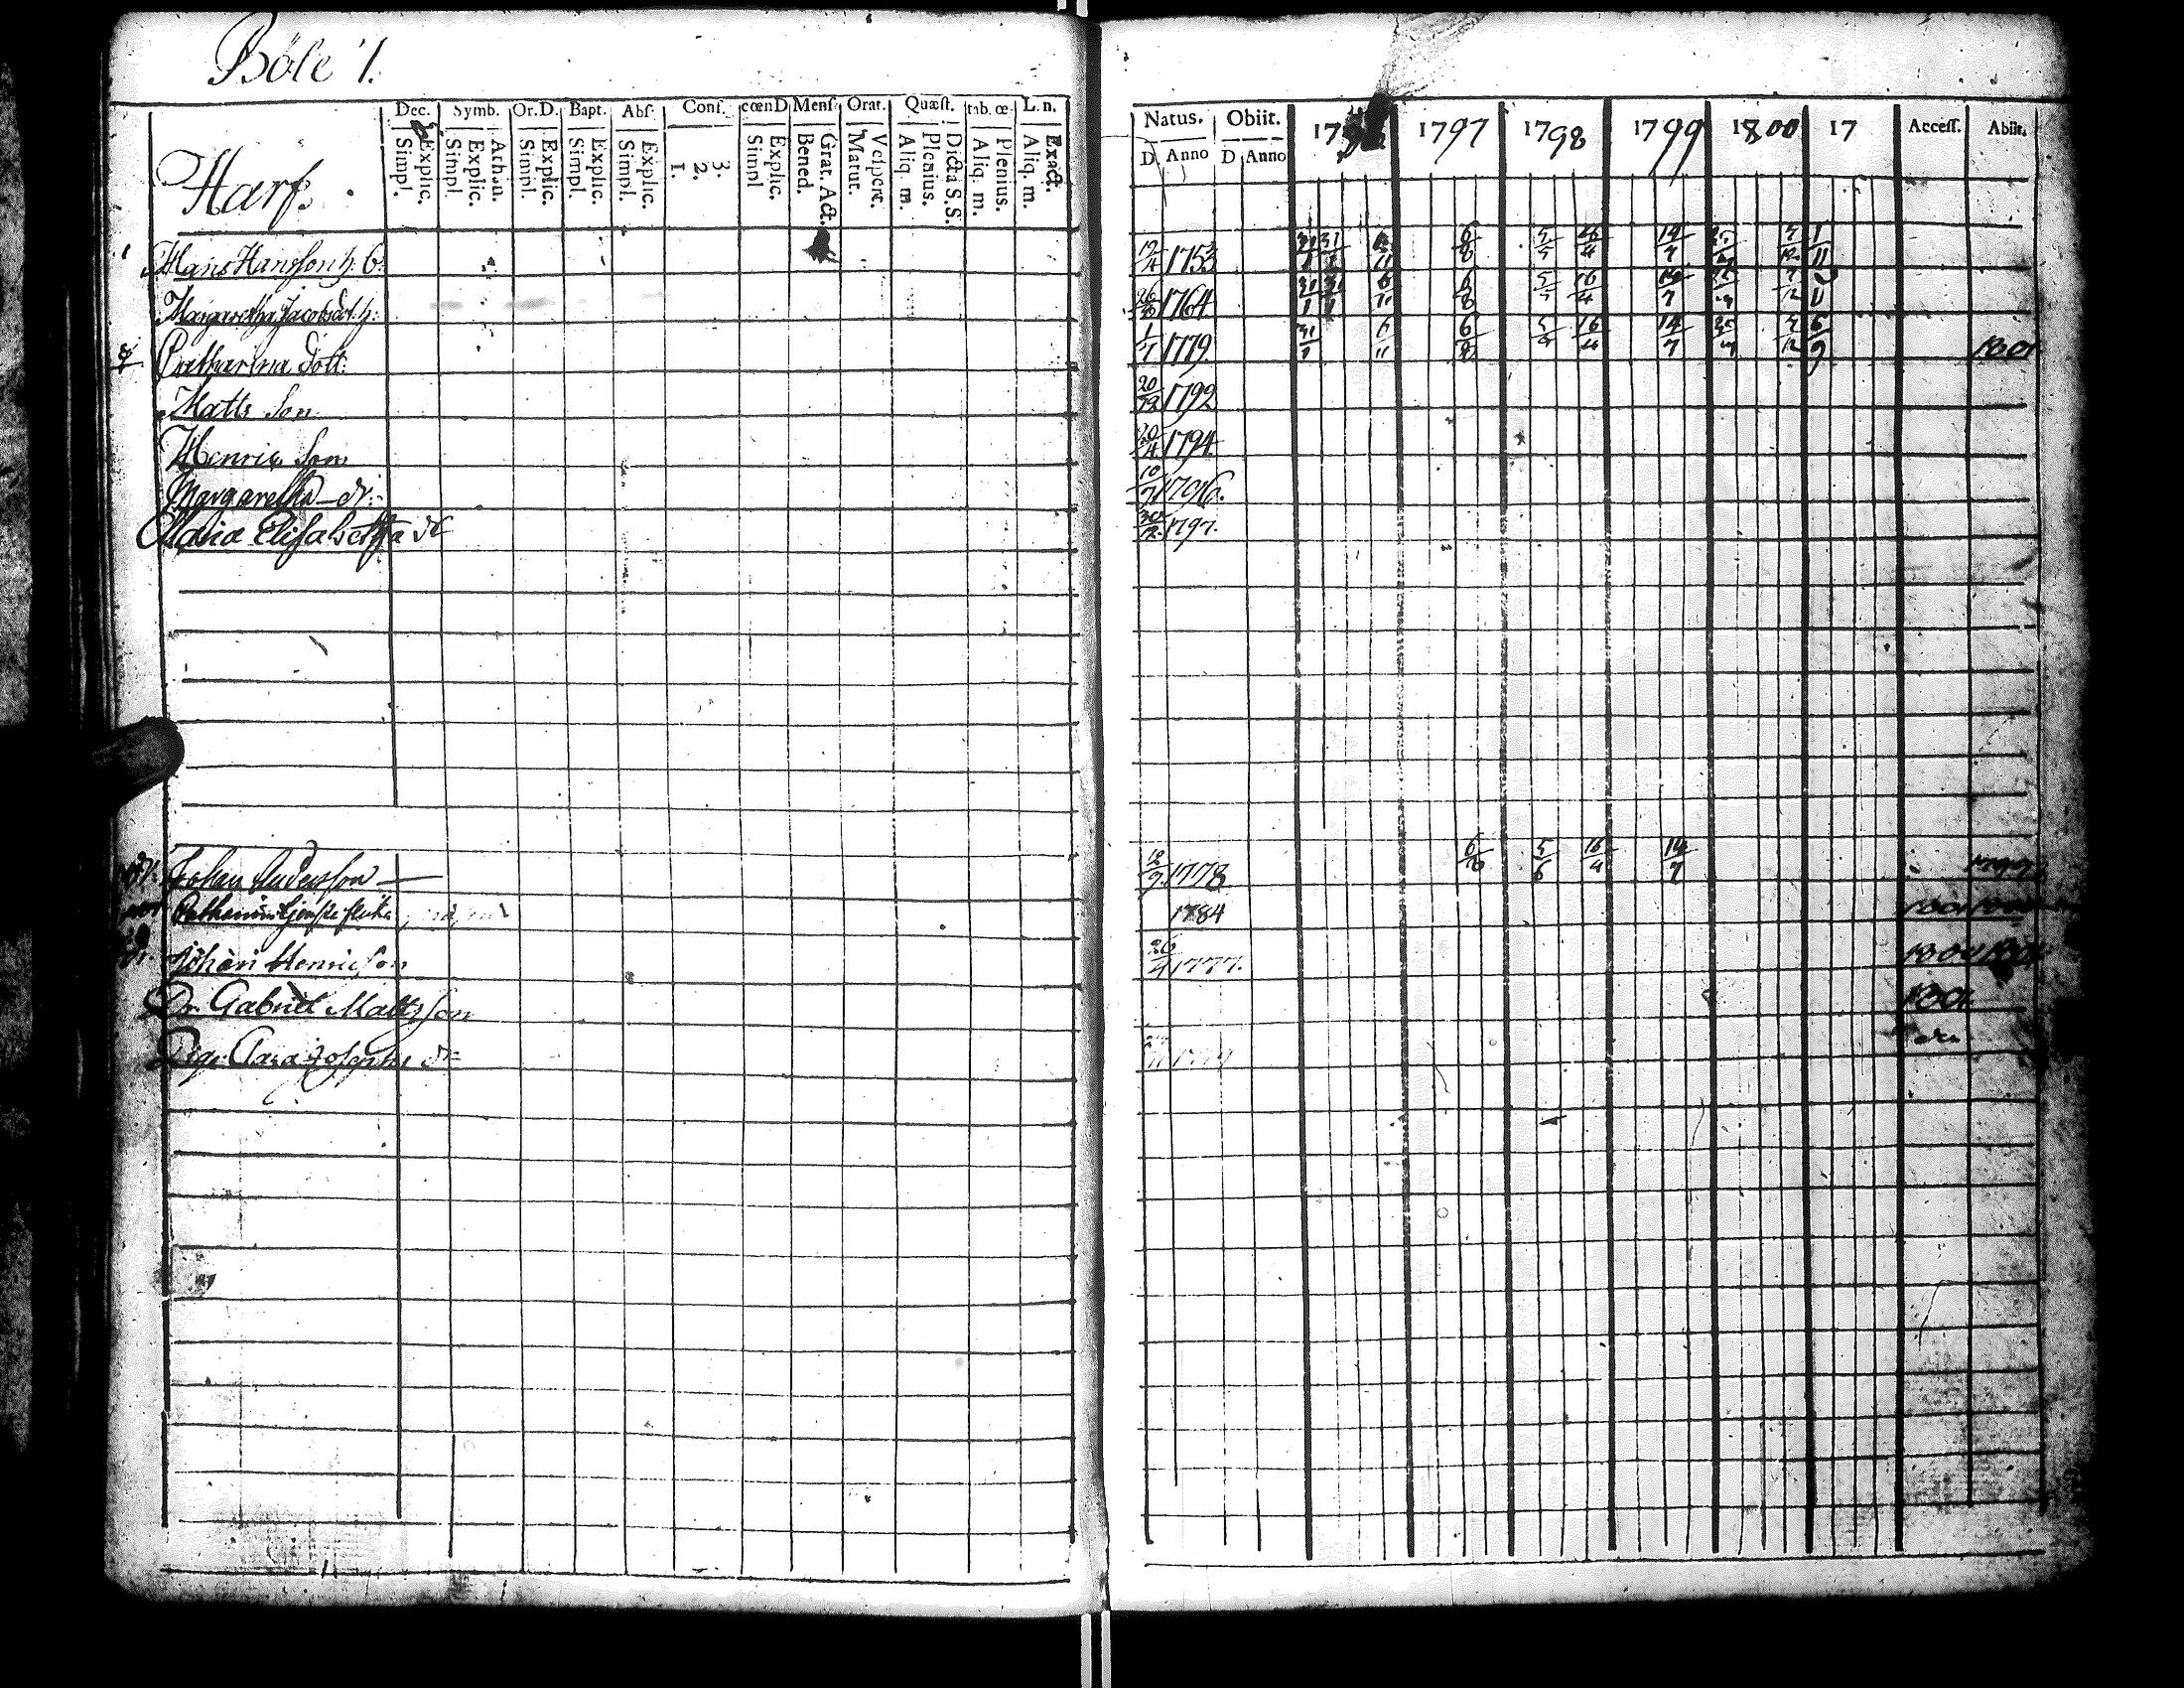 Böle 1.
Dec. Symb. Or.D. Bapt. Abs. Conf. cœnD Mens. Orat. Quæst. tab. œ. L. n.
Explic. Simpl. Athan. Explic. Simpl. Explic. Simpl. Explic. Simpl. Explic. Simpl. 3. 2. 1. Explic. Simpl Grat. Act. Bened. Vespert. Matut. Dicta S.S. Plenius. Aliq. m. Plenius. Aliq. m. Exact. Aliq. m.
Harf
Hans Hansson h. b.
Margaretha Jacobsdot. h:
Catharina dott.
Matts Son
Henric Son
Margaretha dr.
Maria Elisabetha dr
Johan Andersson
Catharina tjenste flicka
Johan Henricson
Dr. Gabriel Mattsson
Pig. Clara Josephs dr
Natus. Obiit. 1797 1798 1799 1800 17 Access. Abiit.
D Anno D Anno
12/4 1753 6/8 14/7
26/8 1764 6/8 5/7 16/4 14/7
1/7 1779 31/1 6/11 6/8 16/4 14/7 1801
20/12 1792
20/4 1794
10/7 1796.
30/12 1797.
12/7 1778 6/8 5/6 16/4 14/7 1799
1784
26/4 1777. 1800 1801
1801
dr